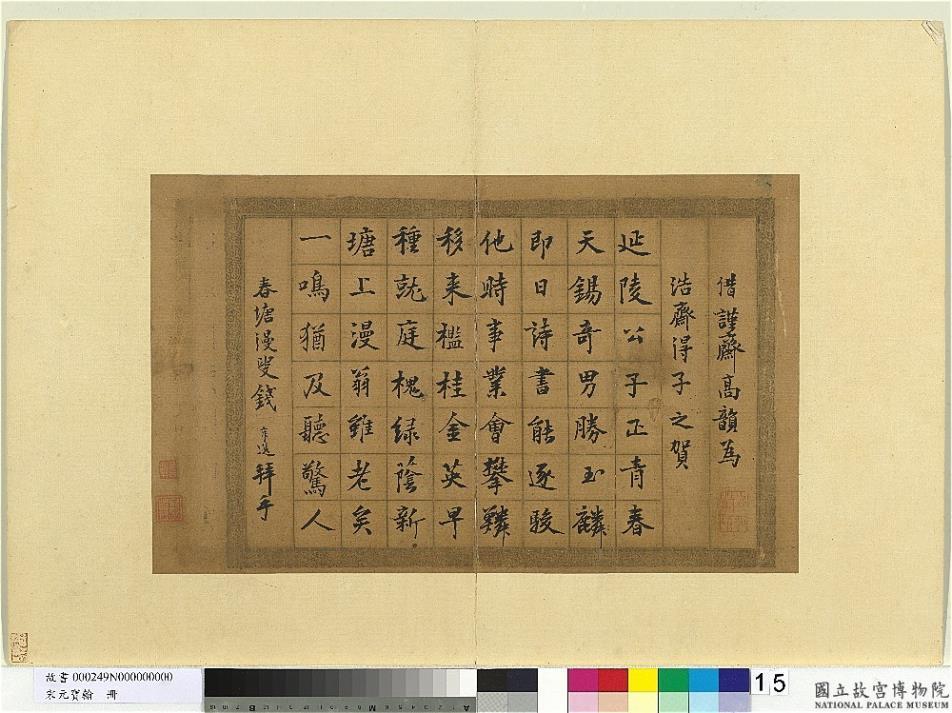 借謹齋高韻為
浩齋得子之賀
延陵公子正青春
天錫奇男勝玉麟
即日詩書能逐駿
他時事業會攀鱗
移来檻桂金英早
種就庭槐綠蔭新
瑭上漫翁雖老矣
一鳴猶及聽驚人
春塘漫叟錢拜手
故書 000249N000000000
宋元寶翰 冊
15
國立故宮博物院
NATIONAL PALACE MUSEUM